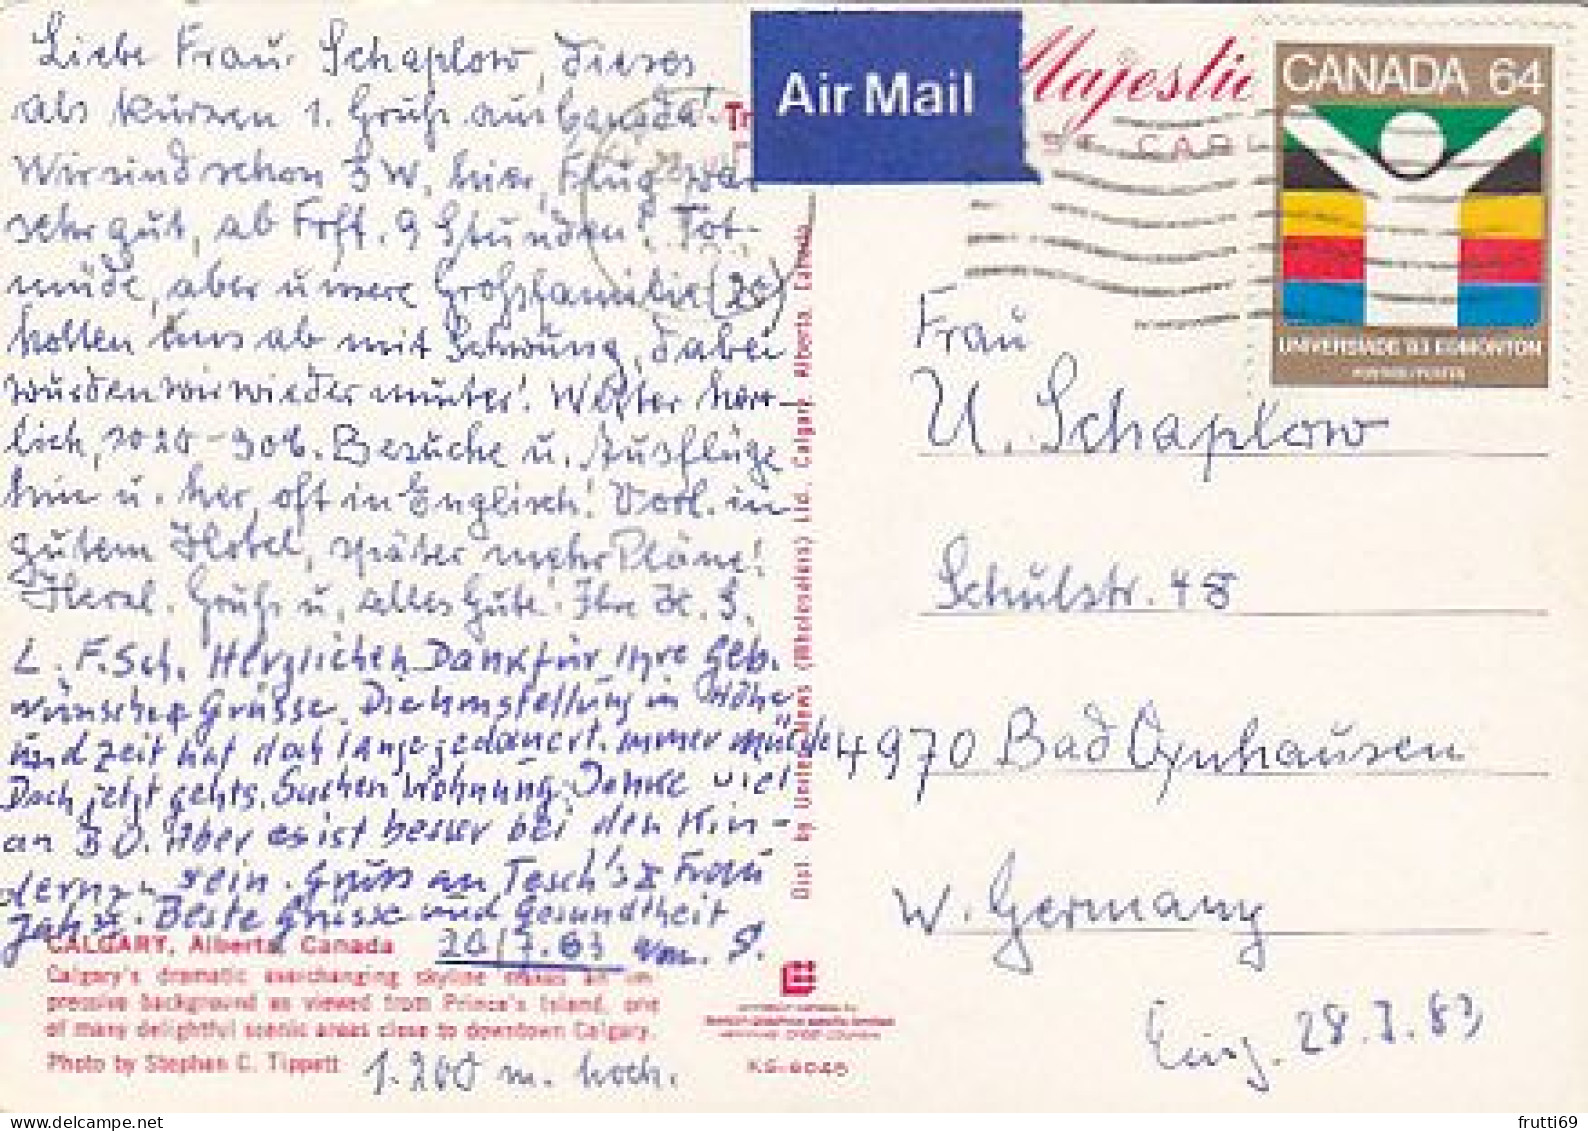 Liebe Frau Schaplow, dieses
als kurzen 1. Gruß aus Canada!
Wir sind schon 3 W. hier, Flug war
sehr gut, ab Frft. 9 Stunden! Tot-
müde, aber unsere Großfamilie (20)
hollen uns ab mit Schwung, dabei
wurden wir wieder munter! Wetter herr-
lich, so 20-30%. Besuche u. Ausflüge
hin u. her, oft in Englisch! Vorl. in
gutem Hotel, später mehr Pläne!
Herzl. Gruß u. alles Gute! Ihre H. S.
L. F. Sch. Herzlichen Dank für Ihre Geb.
wünsche Grüsse. Die Umstellung in Höhe
und Zeit hat doch lange gedauert. immer müde
Doch jetzt gehts. Suchen Wohnung. Denke viel
an B O. Aber es ist besser bei den Kin-
dern zu sein. Gruss an Tesch's Frau
Jahn. Beste Grüsse und Gesundheit
20/7.83
CALGARY, Alberta, Canada
Calgary's dramatic everchanging skyline makes an im-
pressive background as viewed from Prince's Island, one
of many delightful scenic areas close to downtown Calgary.
Photo by Stephen C. Tippett
1.200 m. hoch.
Dist. by United News (Wholesalers) Ltd., Calgary, Alberta, Canada
KS-6045
Air Mail
Majestic
CANADA 64
UNIVERSIADE '83 EDMONTON
POSTAGE/POSTES
Frau
U. Schaplow
Schulstr. 48
4970 Bad Oynhausen
W. Germany
Eing. 28.7.83
frutti69